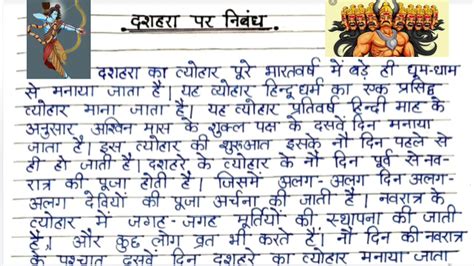 दशहरा पर निबंध
दशहरा का त्योहार पूरे भारतवर्ष में बड़े ही धूम-धाम
से मनाया जाता है। यह त्योहार हिन्दू धर्म का एक प्रसिद्ध
त्योहार माना जाता है। यह त्योहार प्रतिवर्ष हिन्दी माह के
अनुसार, अश्विन मास के शुक्ल पक्ष के दसवें दिन मनाया
जाता है। इस त्योहार की शुरुआत इसके नौ दिन पहले से
ही हो जाती है। दशहरे के त्योहार के नौ दिन पूर्व से नव-
रात्र की पूजा होती है। जिसमें अलग-अलग दिन अलग-
अलग देवियों की पूजा अर्चना की जाती है। नवरात्र के
त्योहार में जगह-जगह मूर्तियों की स्थापना की जाती
है, और कुछ लोग व्रत भी करते हैं। नौ दिन की नवरात्र
के पश्चात दसवें दिन दशहरे का त्योहार मनाया जाता